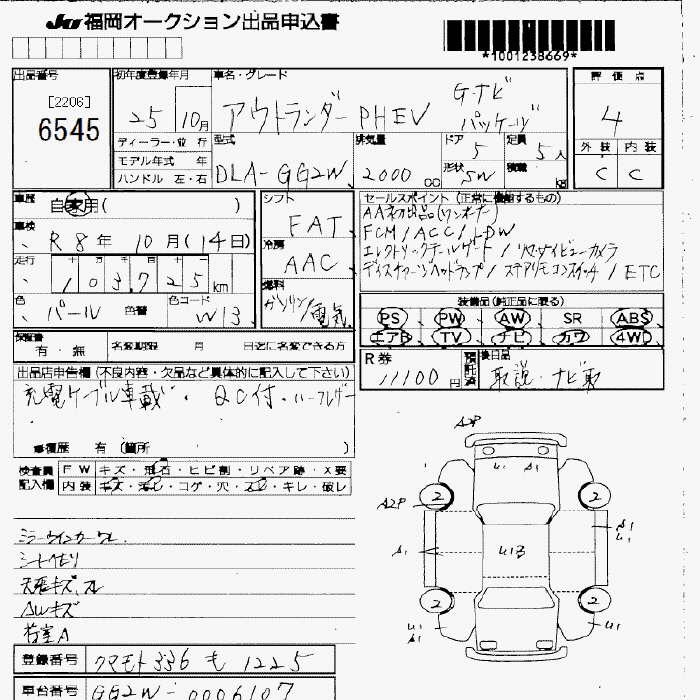 JU福岡オークション出品申込書
*1001238669*
出品番号
[2206]
6545
初年度登録年月
25 10月
車名・グレード
アウトランダーPHEV Gナビパッケージ
評価点
4
外装 内装
C C
ディーラー・並行
モデル年式 年
ハンドル 左・右
型式
DLA-GG2W
排気量
2000 cc
ドア
5
形状
SW
定員
5人
積載
kg
車歴
自家用( )
車検
R8年 10月(14日)
走行
103725km
色
パール 色替
色コード
W13
シフト
FAT
冷房
AAC
燃料
ガソリン/電気
セールスポイント(正常に機能するもの)
AA初出品(ワンオーナー)
FCM/ACC/LDW
エレクトリックテールゲート/リヤビューカメラ
ディスチャージヘッドランプ/ステアリモコンスイッチ/ETC
装備品(純正品に限る)
PS PW AW SR ABS
エアB TV ナビ カワ 4WD
保証書
有・無
名変期限 月 日迄に名変できる方
R券
11100円
預託済
後日品
取説・ナビ取
出品店申告欄(不良内容・欠品など具体的に記入して下さい)
充電ケーブル車載・QC付・
修復歴 有(箇所 )
検査員記入欄
FW キズ・飛石・ヒビ割・リペア跡・X要
内装 キズ・汚れ・コゲ・穴・スレ・キレ・破レ
ミラーウインカーワレ
シートヘタリ
天張キズ、スレ
AWキズ
荷室A
登録番号 クマモト336 も 1225
車台番号 GG2W-0006107
A2P
U1 A1
2 2
A2P
A1
U1
A1
U1B
2 2
U1
A1
U1